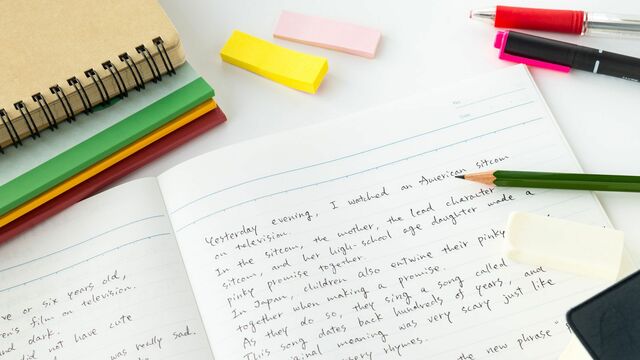 No.
Date
ve or six years old,
en's film on television.
and dark.
did not have cute
was really sad.
Yesterday evening, I watched an American sitcom
on television.
In the sitcom, the mother, the lead character
sitcom, and her high-school age daughter made a
pinky promise together.
In Japan, children also entwine their pinky
together when making a promise.
As they do so, they sing a song called
This song dates back hundreds of years, and
ginal meaning was very scary just like
sery rhymes.
the new phrase "P